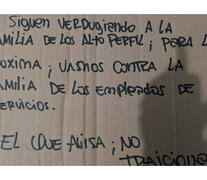 SIGUEN VERDUGIANDO A LA
MILIA DE LOS ALTO PERFIL ; PARA L
OXIMA ; VASMOS CONTRA LA
AMILIA DE LOS EMPLEADOS DE
ERVICIOS.
EL QUE AVISA ; NO
TRAICIONA